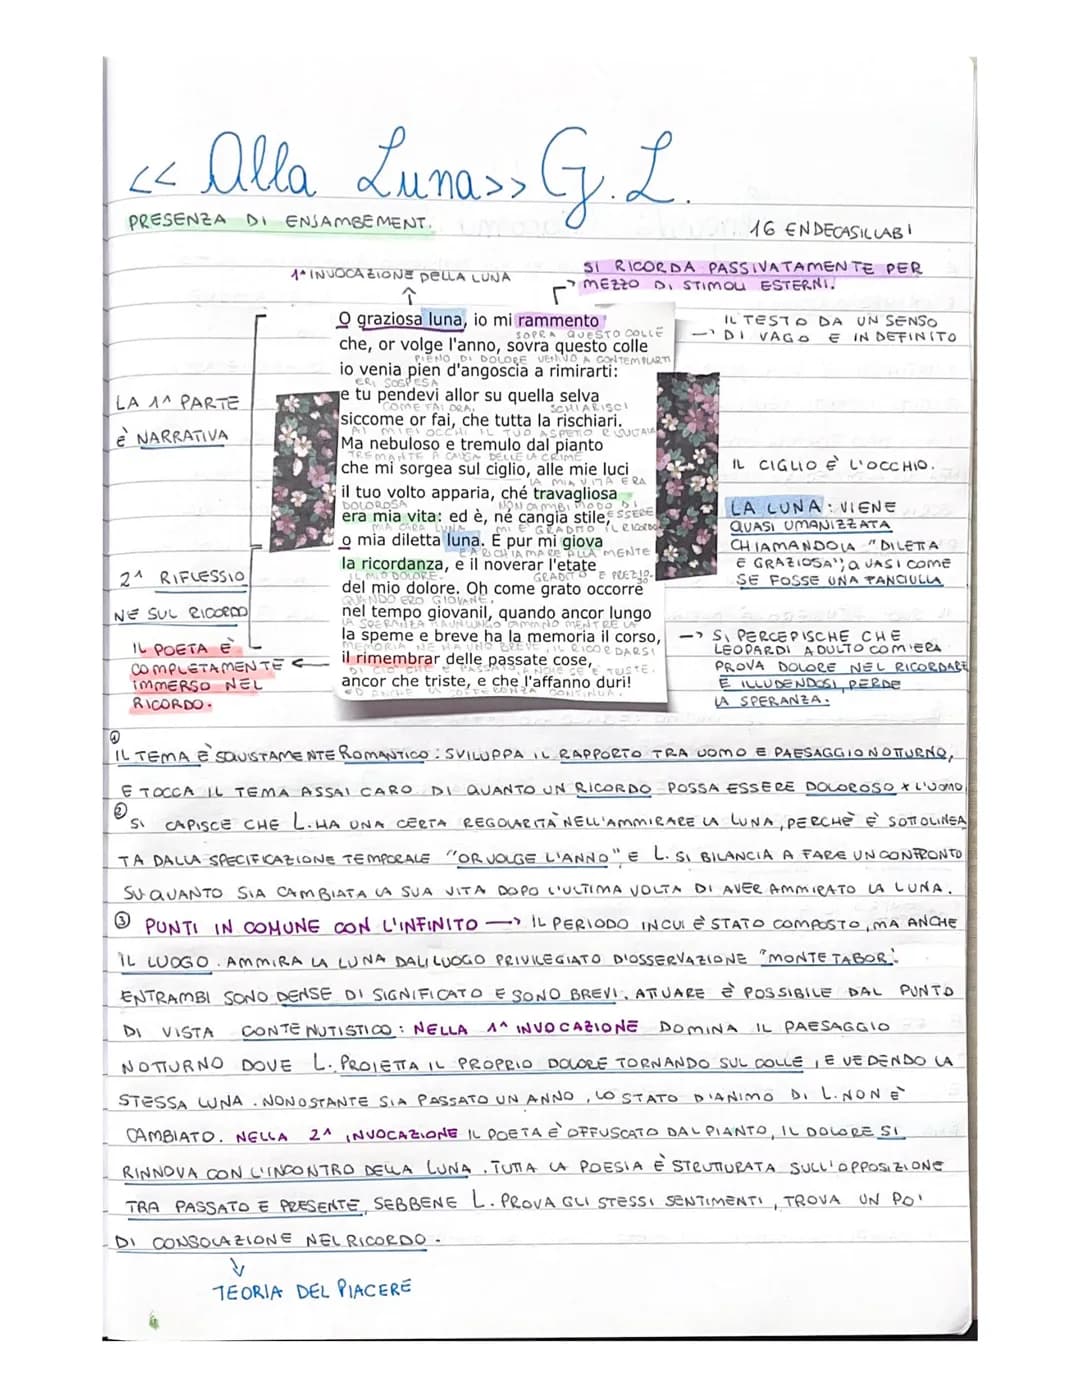 << Alla Luna>> G. L.
PRESENZA DI ENJAMBEMENT.
16 ENDECASILLABI
1ª INVOCAZIONE DELLA LUNA
SI RICORDA PASSIVATAMENTE PER
MEZZO DI STIMOLI ESTERNI.
O graziosa luna, io mi rammento
SOPRA QUESTO COLLE
che, or volge l'anno, sovra questo colle
PIENO DI DOLORE VENIVO A CONTEMPLARTI
io venia pien d'angoscia a rimirarti:
ERI SOSPESA
e tu pendevi allor su quella selva
COME FAI ORA, SCHIARISCI
siccome or fai, che tutta la rischiari.
AI MIEI OCCHI IL TUO ASPETTO RISULTAVA
Ma nebuloso e tremulo dal pianto
TREMANTE A CAUSA DELLE LACRIME
che mi sorgea sul ciglio, alle mie luci
LA MIA VITA ERA
il tuo volto apparia, ché travagliosa
DOLOROSA NON CAMBI MODO DI ESSERE
era mia vita: ed è, né cangia stile,
MIA CARA LUNA MI È GRADITO IL RICORDO
o mia diletta luna. E pur mi giova
E A RICHIAMARE ALLA MENTE
la ricordanza, e il noverar l'etate
IL MIO DOLORE. GRADITO E PREZIO-
del mio dolore. Oh come grato occorre
QUANDO ERO GIOVANE.
nel tempo giovanil, quando ancor lungo
LA SPERANZA HA UN LUNGO CAMMINO MENTRE LA
la speme e breve ha la memoria il corso,
MEMORIA NE HA UNO BREVE, IL RICORDARSI
il rimembrar delle passate cose,
DI CIÒ CHE È PASSATO, ANCHE SE È TRISTE.
ancor che triste, e che l'affanno duri!
ED ANCHE LA SOFFERENZA CONTINUA.
LA 1ª PARTE
È NARRATIVA
2ª RIFLESSIO
NE SUL RICORDO
IL POETA È
COMPLETAMENTE
IMMERSO NEL
RICORDO.
IL TESTO DA UN SENSO
DI VAGO E INDEFINITO
IL CIGLIO È L'OCCHIO.
LA LUNA: VIENE
QUASI UMANIZZATA
CHIAMANDOLA "DILETTA
E GRAZIOSA", QUASI COME
SE FOSSE UNA FANCIULLA
SI PERCEPISCHE CHE
LEOPARDI ADULTO COM'ERA
PROVA DOLORE NEL RICORDARE
E ILLUDENDOSI, PERDE
LA SPERANZA.
① IL TEMA È SQUISTAMENTE ROMANTICO: SVILUPPA IL RAPPORTO TRA UOMO E PAESAGGIO NOTTURNO,
E TOCCA IL TEMA ASSAI CARO DI QUANTO UN RICORDO POSSA ESSERE DOLOROSO X L'UOMO
② SI CAPISCE CHE L. HA UNA CERTA REGOLARITÀ NELL'AMMIRARE LA LUNA, PERCHÈ È SOTTOLINEA
TA DALLA SPECIFICAZIONE TEMPORALE "OR VOLGE L'ANNO" E L. SI BILANCIA A FARE UN CONFRONTO
SU QUANTO SIA CAMBIATA LA SUA VITA DOPO L'ULTIMA VOLTA DI AVER AMMIRATO LA LUNA.
③ PUNTI IN COMUNE CON L'INFINITO —> IL PERIODO IN CUI È STATO COMPOSTO, MA ANCHE
IL LUOGO. AMMIRA LA LUNA DAL LUOGO PRIVILEGIATO D'OSSERVAZIONE "MONTE TABOR".
ENTRAMBI SONO DENSE DI SIGNIFICATO E SONO BREVI. ATUARE È POSSIBILE DAL PUNTO
DI VISTA CONTENUTISTICO: NELLA 1ª INVOCAZIONE DOMINA IL PAESAGGIO
NOTTURNO DOVE L. PROIETTA IL PROPRIO DOLORE TORNANDO SUL COLLE, E VEDENDO LA
STESSA LUNA. NONOSTANTE SIA PASSATO UN ANNO, LO STATO D'ANIMO DI L. NON È
CAMBIATO. NELLA 2ª INVOCAZIONE IL POETA È OFFUSCATO DAL PIANTO, IL DOLORE SI
RINNOVA CON L'INCONTRO DELLA LUNA. TUTTA LA POESIA È STRUTTURATA SULL'OPPOSIZIONE
TRA PASSATO E PRESENTE, SEBBENE L. PROVA GLI STESSI SENTIMENTI, TROVA UN PO'
DI CONSOLAZIONE NEL RICORDO.
TEORIA DEL PIACERE